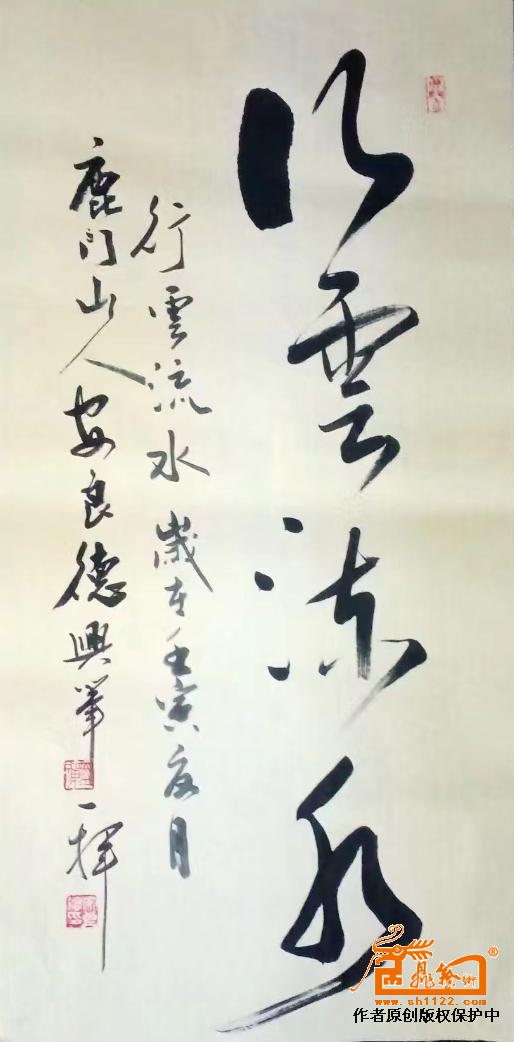 行雲流水
行雲流水 歲在壬寅夏月
鹿门山人安良德興筆一揮
®
www.sh1122.com
作者原创版权保护中